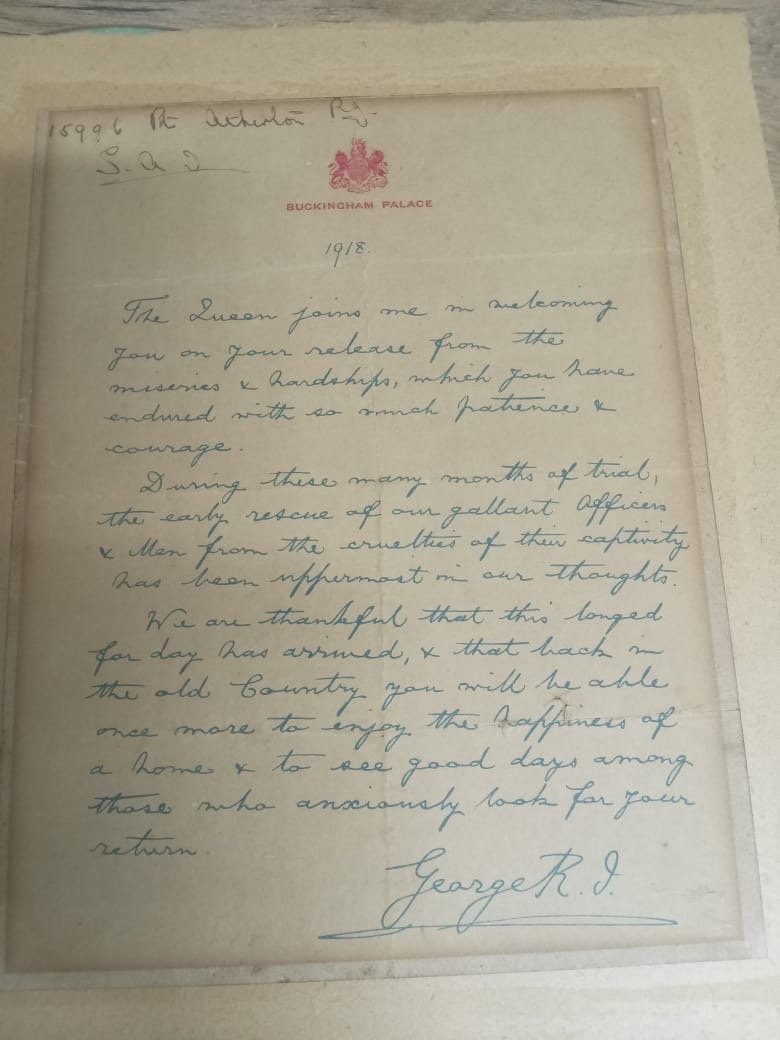 15996 Pte Atherton Rg
S. A I
BUCKINGHAM PALACE
1918.
The Queen joins me in welcoming
you on your release from the
miseries & hardships, which you have
endured with so much patience &
courage.
During these many months of trial,
the early rescue of our gallant Officers
& Men from the cruelties of their captivity
has been uppermost in our thoughts.
We are thankful that this longed
for day has arrived, & that back in
the old Country you will be able
once more to enjoy the happiness of
a home & to see good days among
those who anxiously look for your
return.
George R. I.